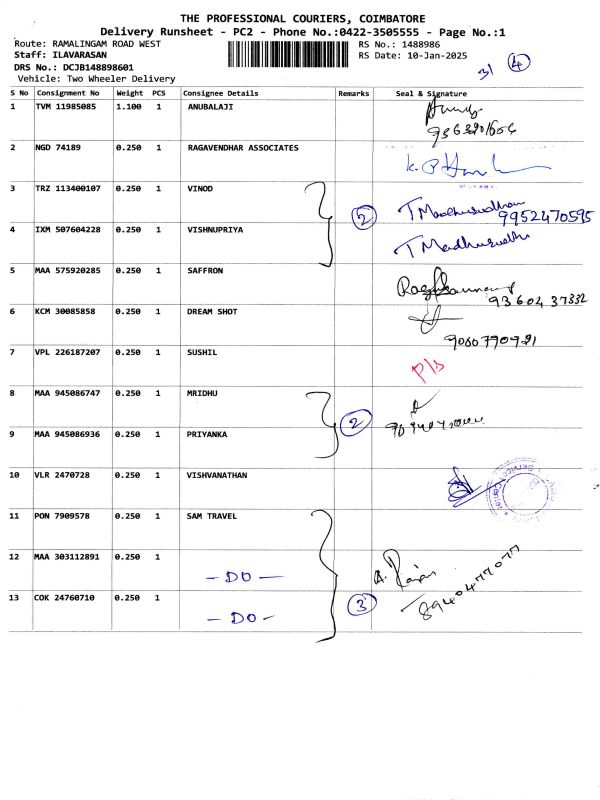 THE PROFESSIONAL COURIERS, COIMBATORE
Delivery Runsheet - PC2 - Phone No.:0422-3505555 - Page No.:1
Route: RAMALINGAM ROAD WEST RS No.: 1488986
Staff: ILAVARASAN RS Date: 10-Jan-2025
DRS No.: DCJB148898601
Vehicle: Two Wheeler Delivery
31 4
S No Consignment No Weight PCS Consignee Details Remarks Seal & Signature
1 TVM 11985085 1.100 1 ANUBALAJI
2 NGD 74189 0.250 1 RAGAVENDHAR ASSOCIATES
3 TRZ 113400107 0.250 1 VINOD 2 T Madhusudhan 9952470595
4 IXM 507604228 0.250 1 VISHNUPRIYA
5 MAA 575920285 0.250 1 SAFFRON
6 KCM 30085858 0.250 1 DREAM SHOT
7 VPL 226187207 0.250 1 SUSHIL P/s
8 MAA 945086747 0.250 1 MRIDHU 2
9 MAA 945086936 0.250 1 PRIYANKA
10 VLR 2470728 0.250 1 VISHVANATHAN
11 PON 7909578 0.250 1 SAM TRAVEL
12 MAA 303112891 0.250 1 - DO -
13 COK 24760710 0.250 1 - DO - 3 8940477077